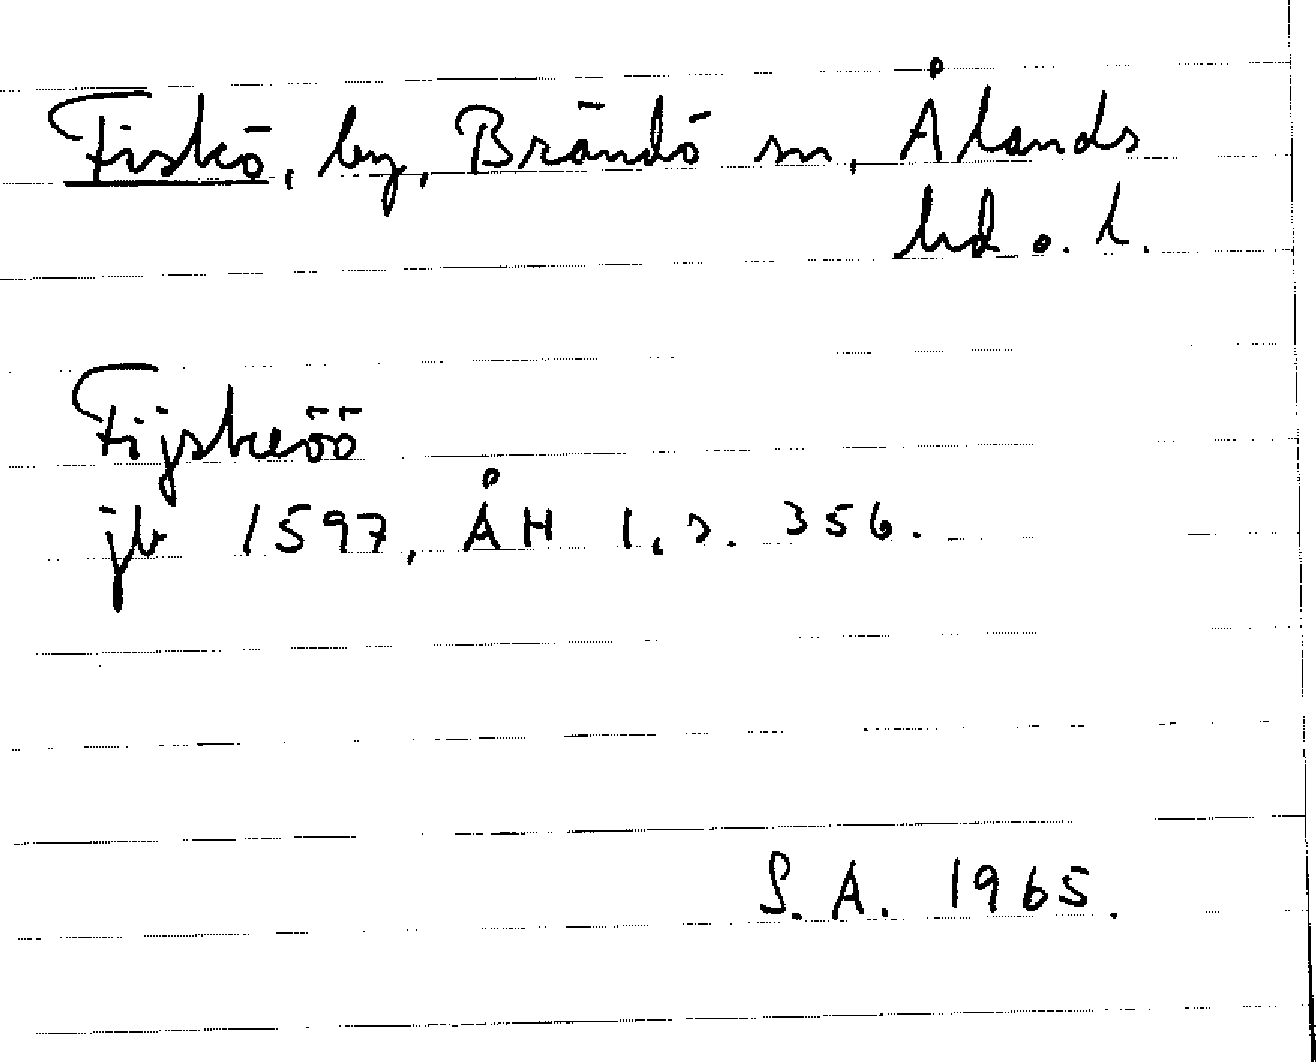 Fiskö, by, Brändö sn, Ålands
hd o. l.
Fijskeöö
jb 1597, ÅH 1, s. 356.
S. A. 1965.